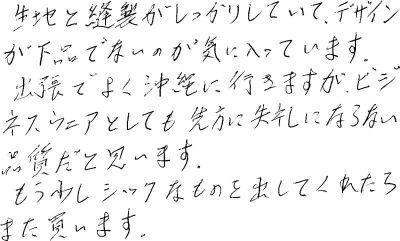 生地と縫製がしっかりしていて、デザイン
が下品でないのが気に入っています。
出張でよく沖縄に行きますが、ビジ
ネスウェアとしても先方に失礼にならない
品質だと思います。
もう少しシックなものを出してくれたら
また買います。